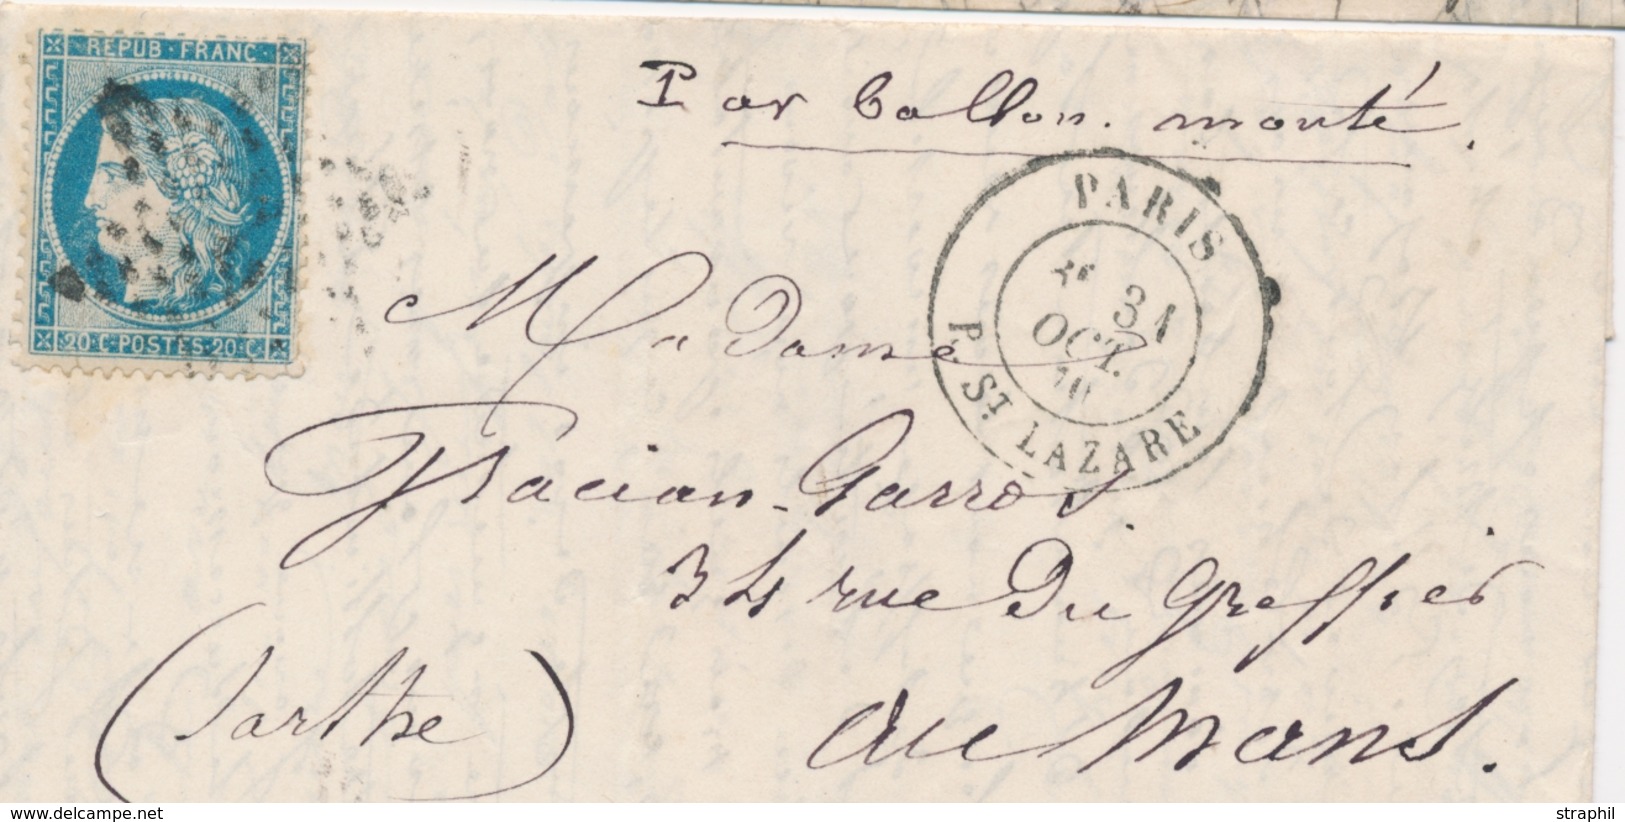 REPUB·FRANC·
20·C·POSTES·20·C·
Par ballon monté.
PARIS
31
OCT.
70
P. ST. LAZARE
Madame
Gacian-Garros.
34 rue du Greffier
au Mans.
(Sarthe)
www.delcampe.net
straphil